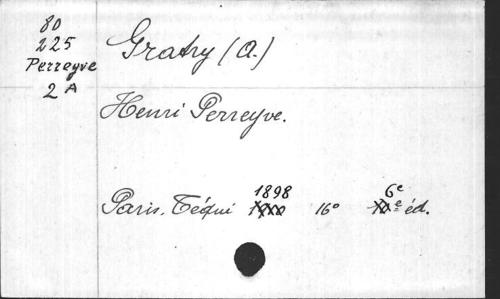 80
225
Perreyve
2 A
Gratry (A.)
Henri Perreyve.
1898 6e
Paris. Téqui 16° e éd.